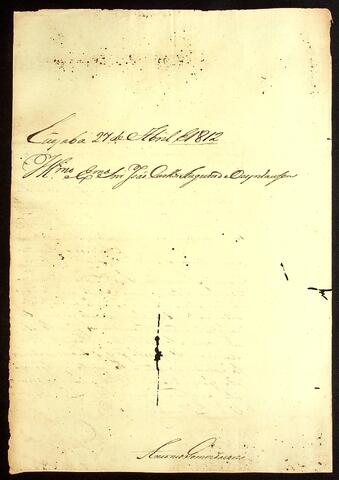 Cuyaba 27 de Abril de 1812
Illmo e Exmo Snr João Carlos Augusto de Oeynhausen
Antonio